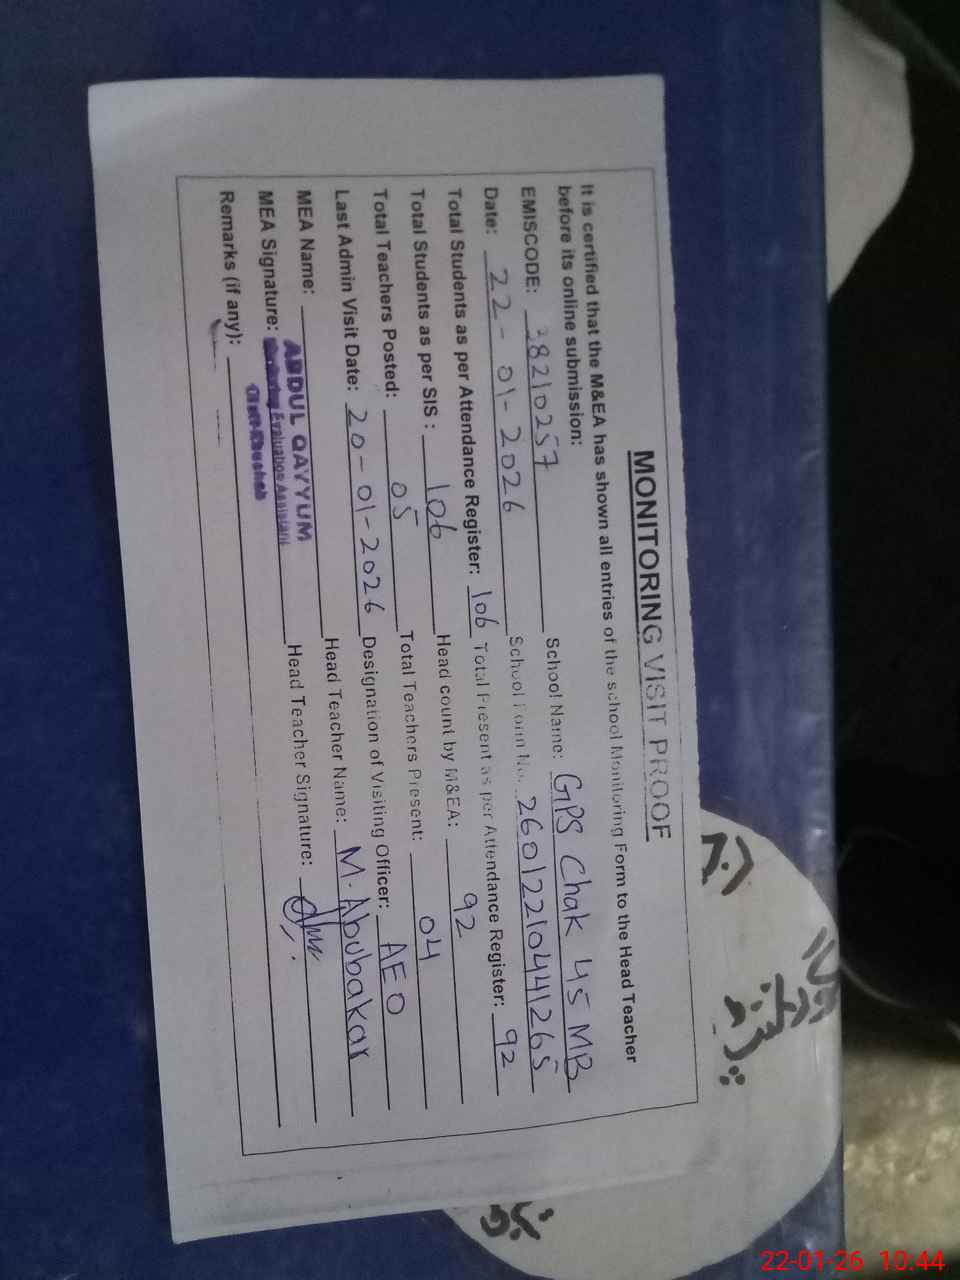 MONITORING VISIT PROOF
It is certified that the M&EA has shown all entries of the school Monitoring Form to the Head Teacher
before its online submission:
EMISCODE: 38210257 School Name: GPS Chak 45 MB
Date: 22-01-2026 School Form No. 26012210441265
Total Students as per Attendance Register: 106 Total Present as per Attendance Register: 92
Total Students as per SIS: 106 Head count by M&EA: 92
Total Teachers Posted: 05 Total Teachers Present: 04
Last Admin Visit Date: 20-01-2026 Designation of Visiting Officer: AEO
MEA Name: ABDUL QAYYUM Head Teacher Name: M. Abubakar
MEA Signature: Evaluation Assistant Head Teacher Signature:
Remarks (if any):
22-01-26 10:44